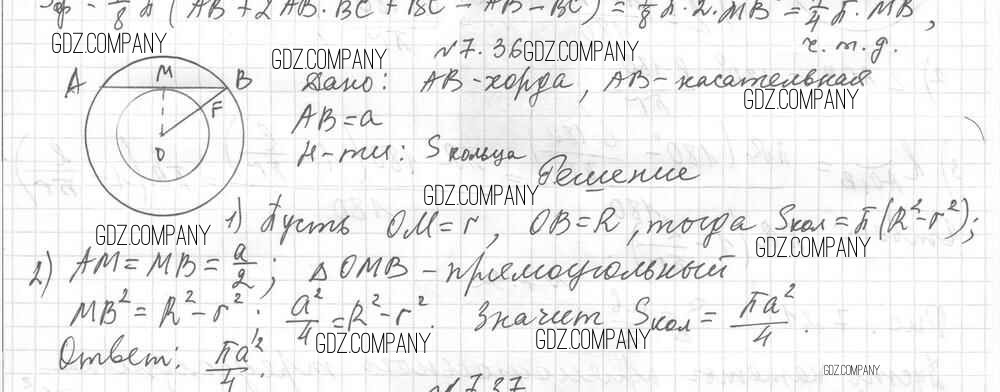 = 1/8 π (AB² + 2AB·BC + BC² - AB² - BC²) = 1/8 π · 2 · MB² = 1/4 π · MB²,
ч.т.д.
GDZ.COMPANY
№7.36 GDZ.COMPANY
GDZ.COMPANY
A M B F O
Дано: AB - хорда, AB - касательная
GDZ.COMPANY
AB = a
Н-ти: S кольца
Решение
GDZ.COMPANY
1) Пусть OM = r, OB = R, тогда Sкол = π(R² - r²);
GDZ.COMPANY
GDZ.COMPANY
2) AM = MB = a/2; △OMB - прямоугольный
MB² = R² - r²; a²/4 = R² - r². Значит Sкол = πa²/4.
GDZ.COMPANY
GDZ.COMPANY
Ответ: πa²/4.
GDZ.COMPANY
№7.37